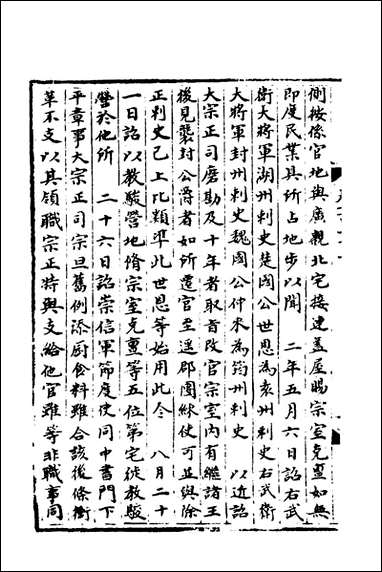 側按係官地與廣親北宅接連蓋屋賜宗室克亶如無
即度民業具所占地步以聞　二年五月六日詔右武
衛大將軍湖州刺史楚國公世恩為袁州刺史右武衛
大將軍封州刺史魏國公仲來為筠州刺史　以近詔
大宗正司磨勘及十年者取首改官宗室內有繼諸王
後見襲封公爵者如所遷官至遥郡團練使可並與除
正刺史己上比類準此世恩等始用此令　八月二十
一日詔以教駿營地脩宗室克亶等五位第宅徙教駿
營於他所　二十六日詔崇信軍節度使同中書門下
平章事大宗正司宗旦舊例添厨食料雖合該後條衝
革不支以其領職宗正特與支給他官雖等非職事同